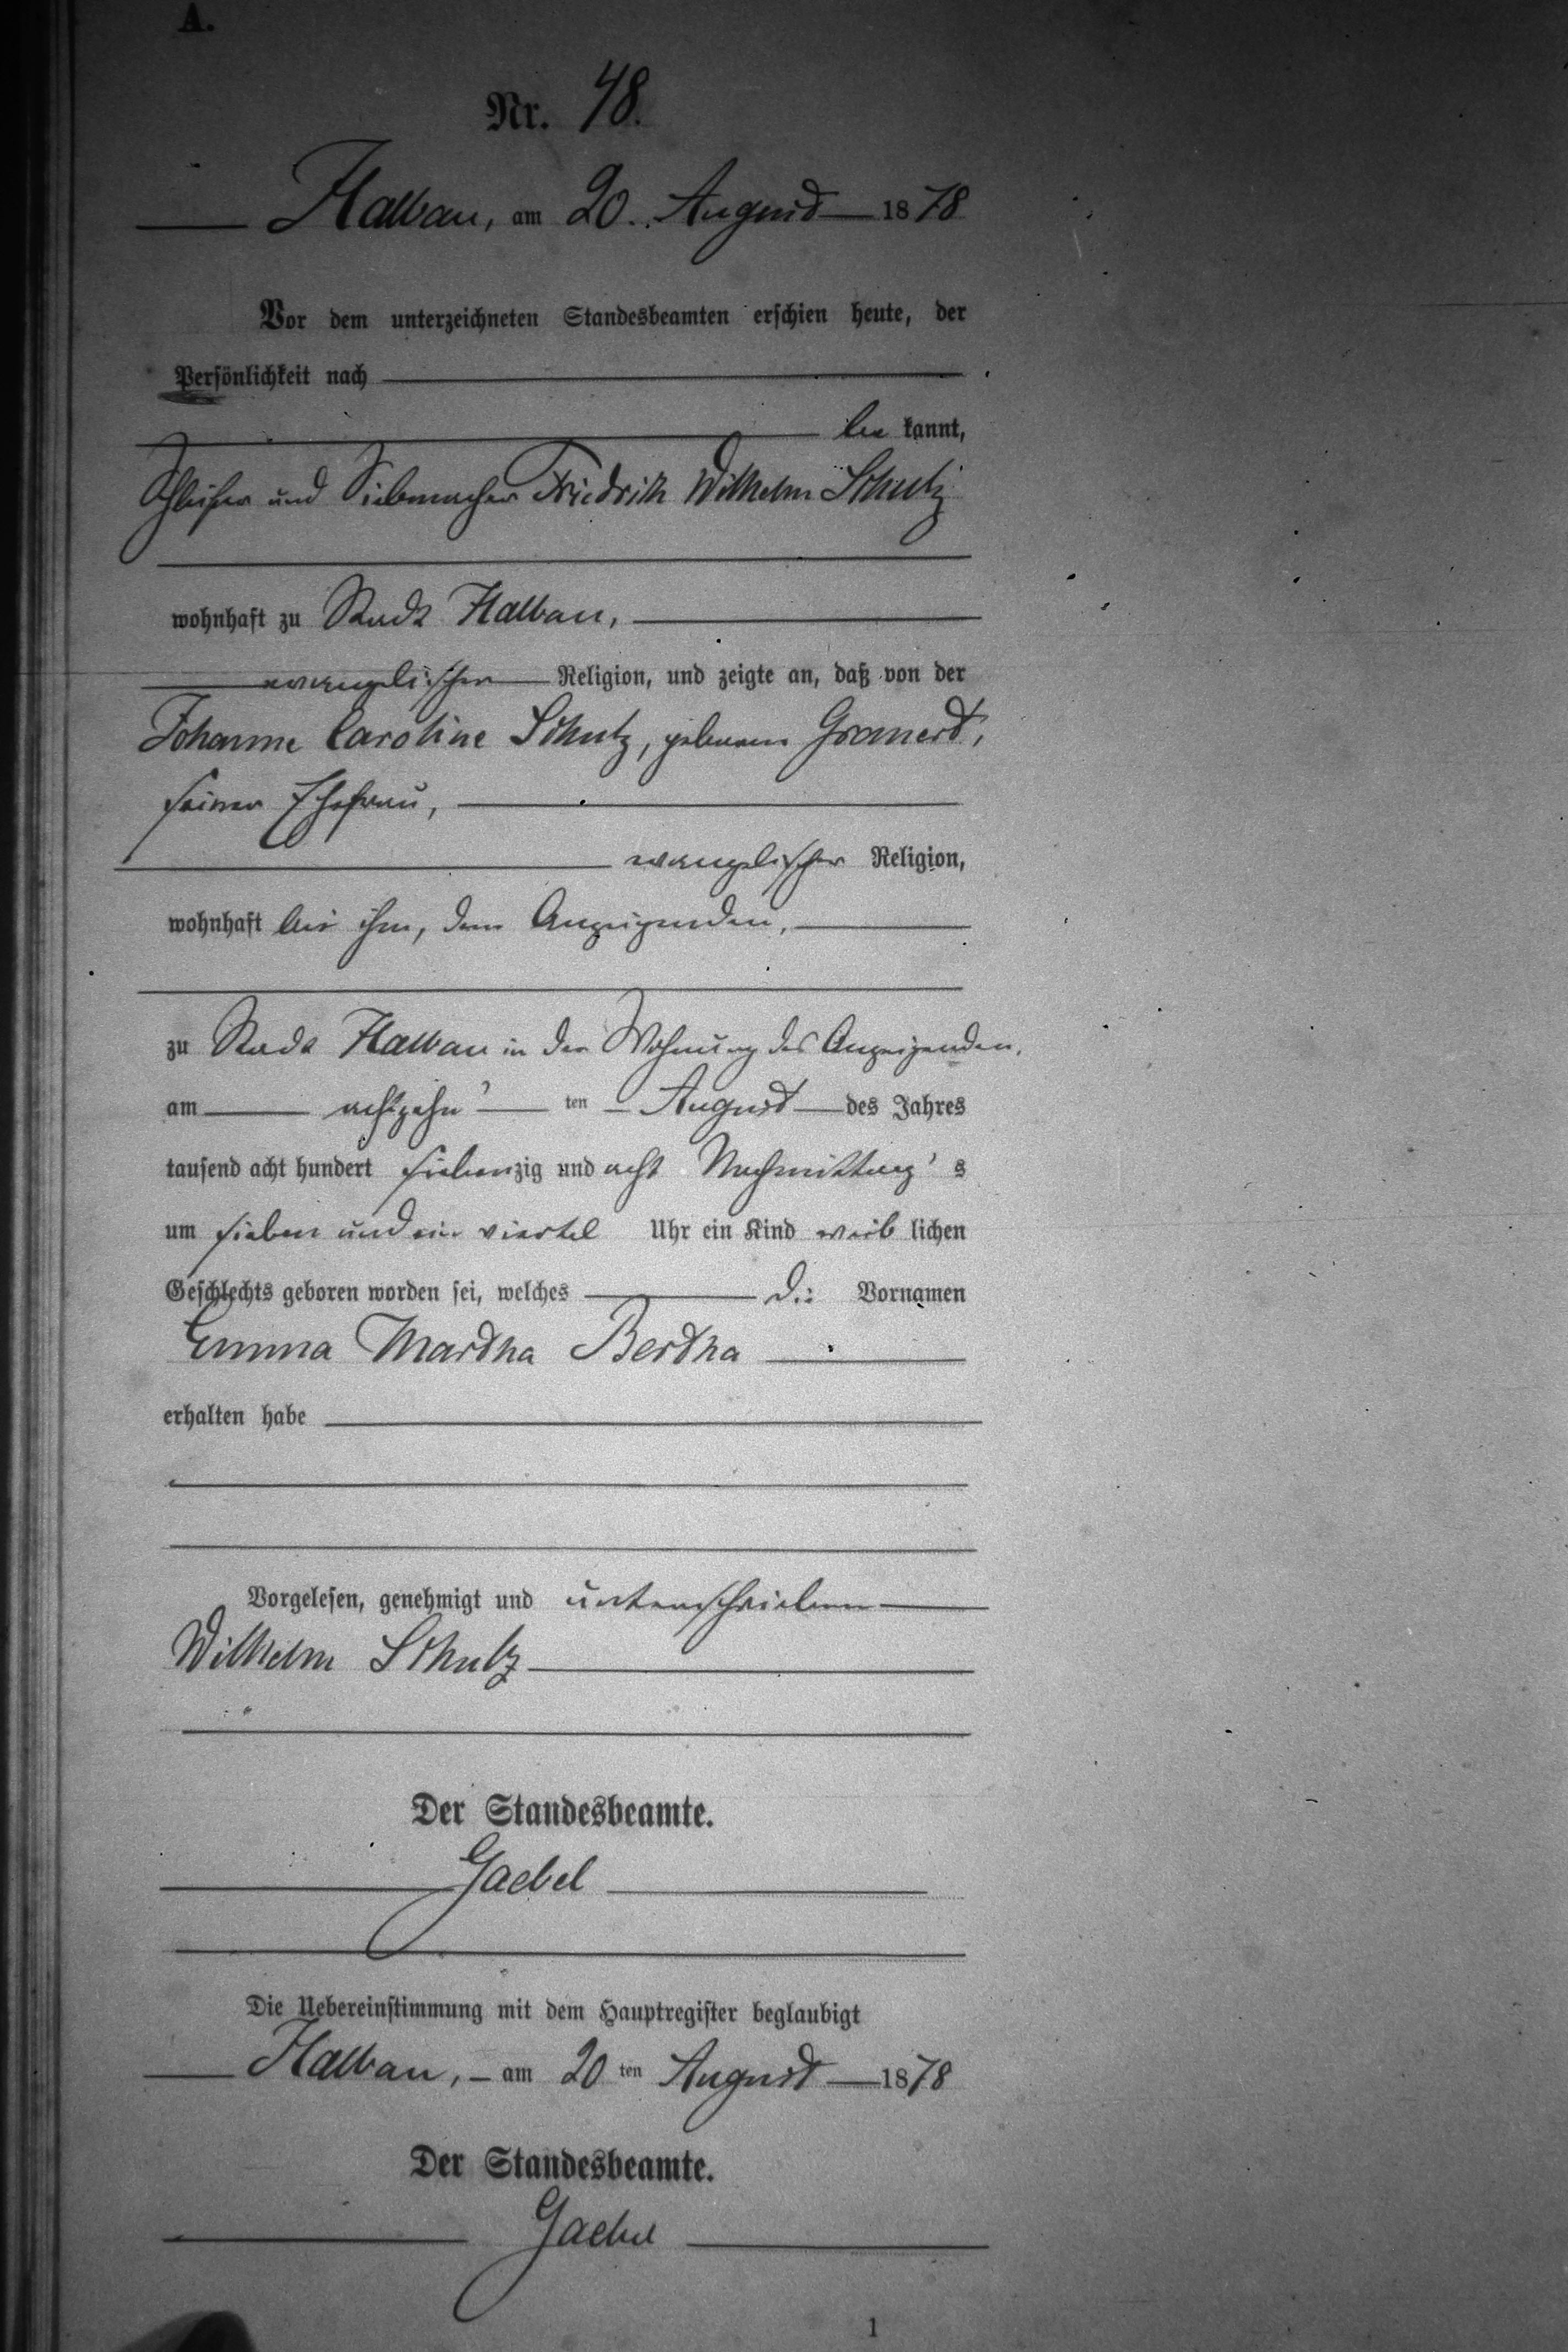 A.
Nr. 48.
Halbau, am 20. August 1878
Vor dem unterzeichneten Standesbeamten erschien heute, der
Persönlichkeit nach
be kannt,
Schleifer und Siebmacher Friedrich Wilhelm Schulz
wohnhaft zu Stadt Halbau,
evangelischer Religion, und zeigte an, daß von der
Johanne Caroline Schulz, geborene Gramert,
seiner Ehefrau,
evangelischer Religion,
wohnhaft bei ihm, dem Anzeigenden,
zu Stadt Halbau in der Wohnung des Anzeigenden,
am achtzehn ten August des Jahres
tausend acht hundert siebenzig und acht Nachmittag s
um sieben und ein viertel Uhr ein Kind weib lichen
Geschlechts geboren worden sei, welches d.: Vornamen
Emma Martha Bertha
erhalten habe
Vorgelesen, genehmigt und unterschrieben
Wilhelm Schulz
Der Standesbeamte.
Gaebel
Die Uebereinstimmung mit dem Hauptregister beglaubigt
Halbau, am 20 ten August 1878
Der Standesbeamte.
Gaebel
1